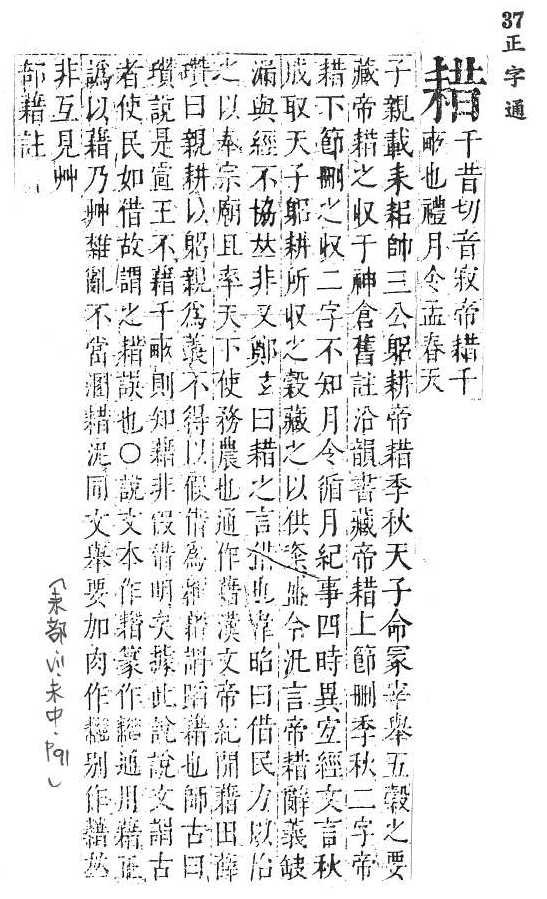 37 正字通
耤 千昔切音寂帝耤千
畝也禮月令孟春天
子親載耒耜帥三公躬耕帝耤季秋天子命冢宰舉五穀之要
藏帝耤之収于神倉舊註沿韻書藏帝耤上節刪季秋二字帝
耤下節刪之収二字不知月令循月紀事四時異宜經文言秋
成取天子躬耕所収之穀藏之以供粢盛今汎言帝耤辭義缺
漏與經不協𠀤非又鄭玄曰耤之言借也韋昭曰借民力以治
之以奉宗廟且率天下使務農也通作藉漢文帝紀開藉田薛
瓚曰親耕以躬親爲義不得以假借爲稱藉謂蹈藉也師古曰
瓚說是宣王不藉千畝則知藉非假借明矣據此說說文謂古
者使民如借故謂之耤誤也○說文本作耤篆作通用藉正
譌以藉乃艸雜亂不當溷耤泥同文舉要加肉作別作𠀤
非互見艸
部藉註
(耒部·八·未中·P91)